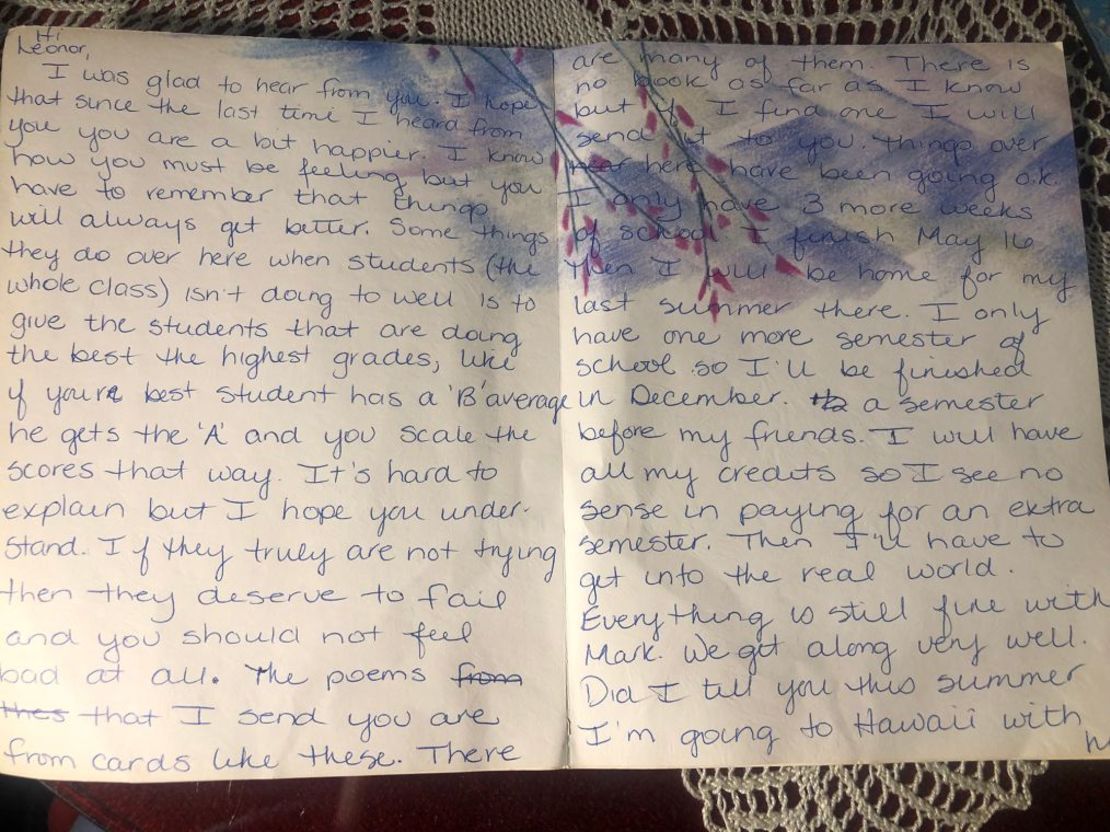 Hi
Leonor,
I was glad to hear from you. I hope
that since the last time I heard from
you you are a bit happier. I know
how you must be feeling but you
have to remember that things
will always get better. Some things
they do over here when students (the
whole class) isn't doing to well is to
give the students that are doing
the best the highest grades, like
if youre best student has a 'B' average
he gets the 'A' and you scale the
scores that way. It's hard to
explain but I hope you under-
stand. If they truly are not trying
then they deserve to fail
and you should not feel
bad at all. The poems from
thes that I send you are
from cards like these. There
are many of them. There is
no book as far as I know
but if I find one I will
send it to you. Things over
here have been going o.k.
I only have 3 more weeks
of school I finish May 16
Then I will be home for my
last summer there. I only
have one more semester of
school so I'll be finished
in December. a semester
before my friends. I will have
all my credits so I see no
sense in paying for an extra
semester. Then I'll have to
get into the real world.
Everything is still fine with
Mark. We get along very well.
Did I tell you this summer
I'm going to Hawaii with